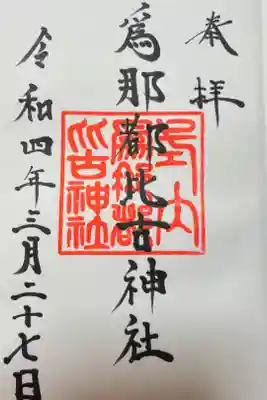 奉拝
為那都比古神社
式内
為那都
比古神社
令和四年三月二十七日